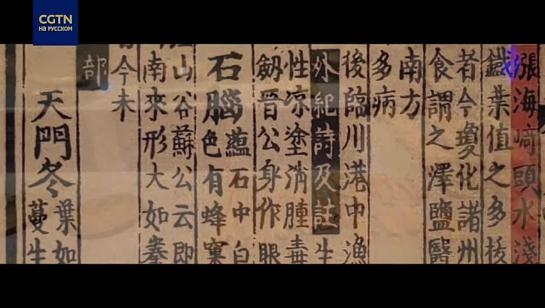 CGTN
НА РУССКОМ
漲海崎頭水淺
鐵葉值之多
者今瓊化諸州
食謂之澤鹽醫
南方
多病
後臨川港中漁
外紀詩及註生
性凉塗消腫毒
劒晉公身作眼
石腦
蘊石中白
色有蜂窠
山谷蘇公云即
南來形大如拳
今未
部
天門冬
葉如
蔓生